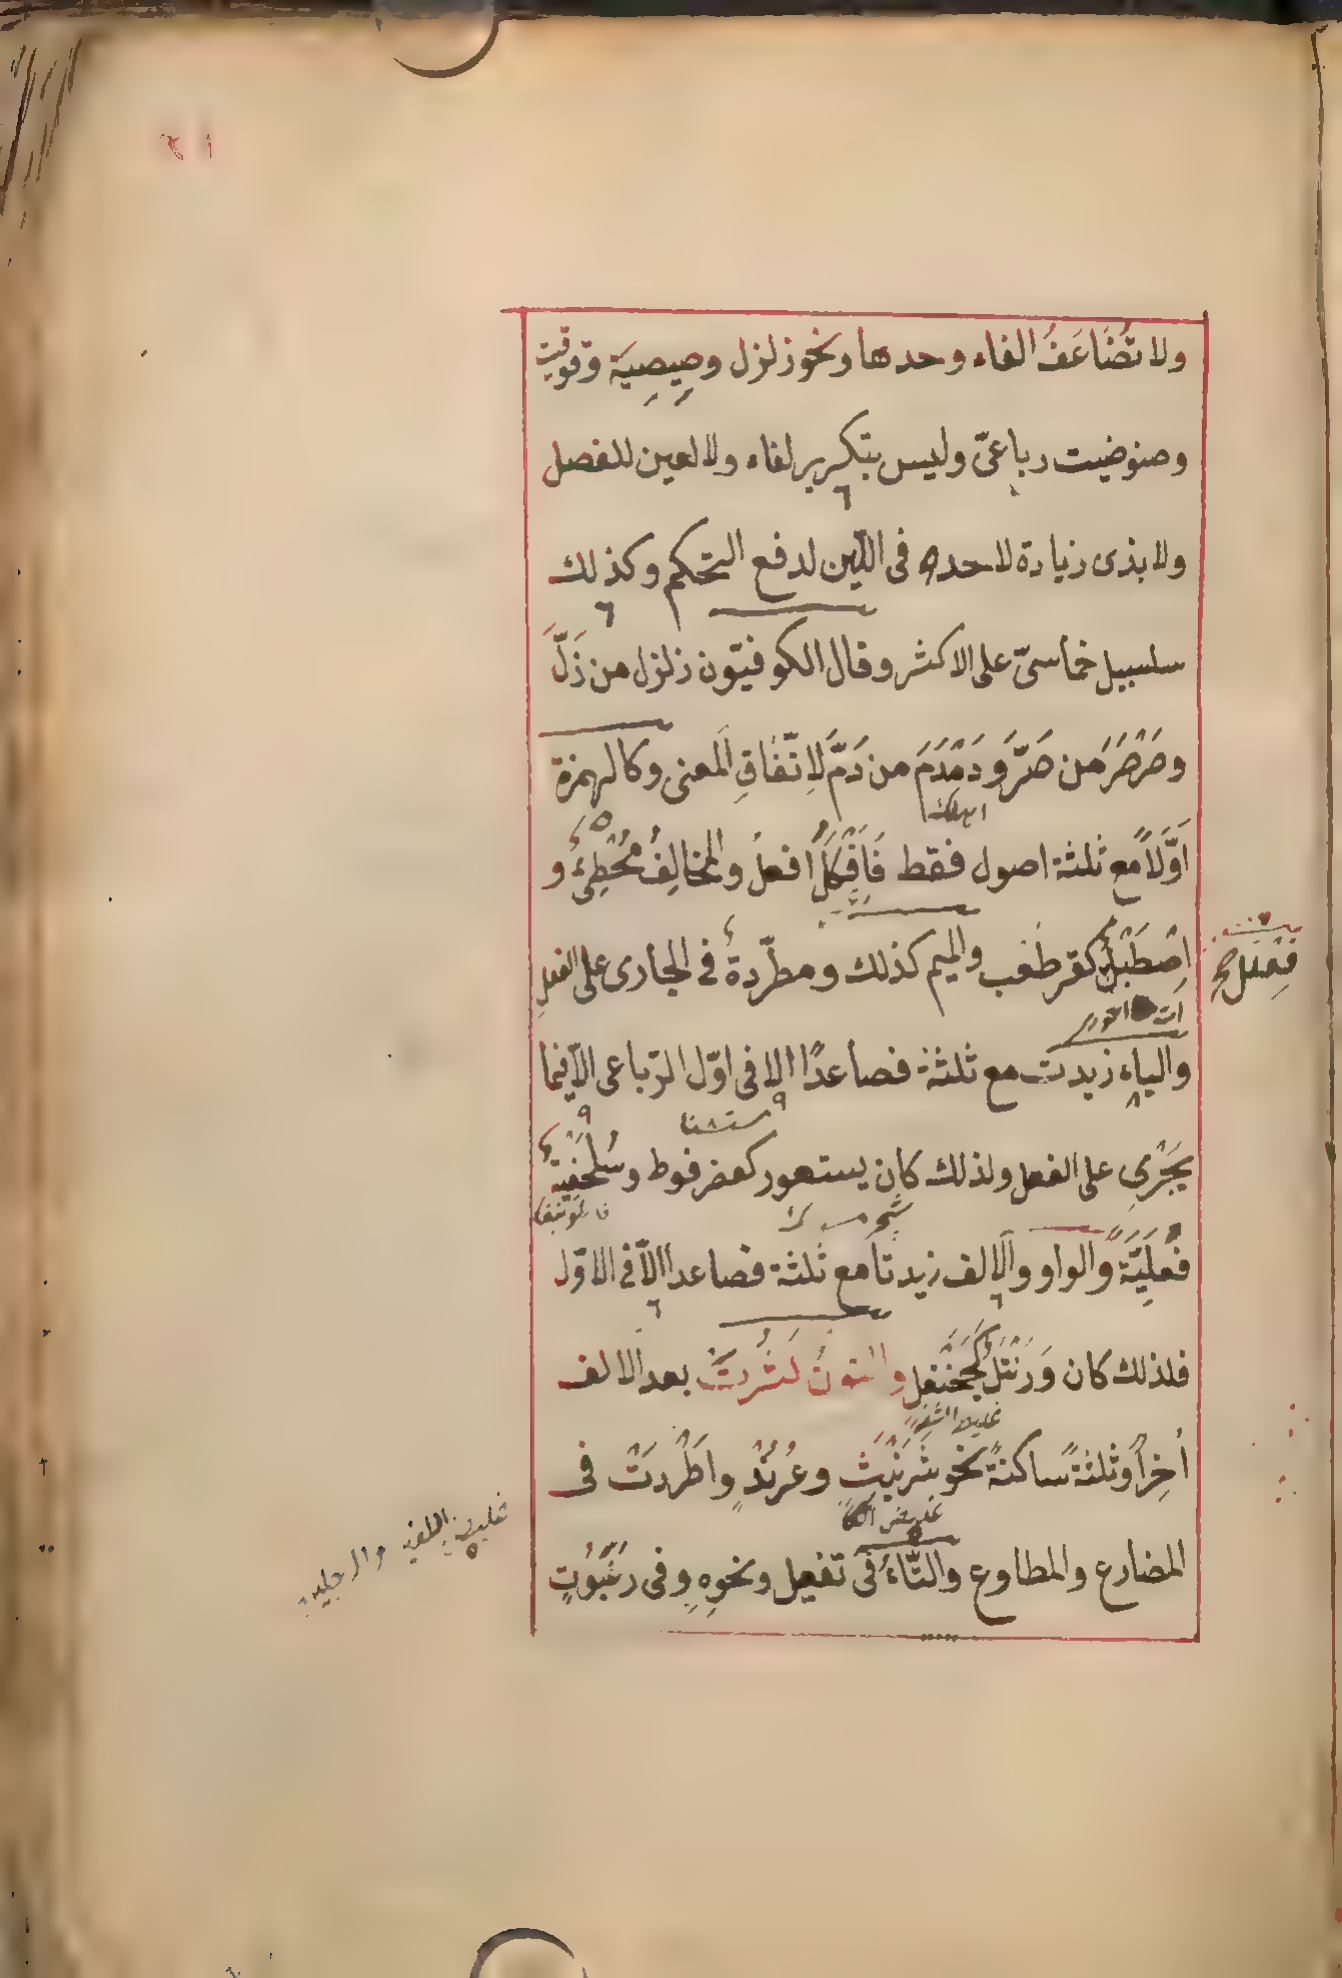 ولا تُضَاعَفُ الفاء وحدها ونحو زلزل وصِيصِيَة وقوقيت
وضوضيت رباعىّ وليس بتكرير لفاء ولا لعين للفصل
ولا بذى زيادة لاحده فى اللّين لدفع التحكم وكذلك
سلسبيل خماسىّ على الاكثر وقال الكوفيّون زلزل من زَلَّ
وصَرْصَرَ من صَرَّ و دَمْدَمَ من دَمَّ لِاِتّفاقِ المعنى وكالهمزة
اَوَّلاً مع ثلثة اصول فقط فَاَفْكَلٌ افعل والمخالِفُ مُخْطِئٌ و
اِصْطَبْلٌ كقرطعب والميم كذلك ومطّردةٌ فى الجارى على الفعلِ
فِعْلَلٌ صح
والياء زيدت مع ثلثة فصاعدًا الا فى اوّل الرّباعى الاّ فيما
يَجْرِى على الفعل ولذلك كان يستعور كعضرفوط وسُلَحْفِيَةٌ
فُعَلِيَّةً والواو والالف زيدتا مع ثلثة فصاعدا الاّ فى الاوّل
فلذلك كان وَرَنْتَلٌ كَجَحَنْفَلٍ والنونُ كَثُرتْ بعد الالف
غليظ الشفة
اٰخِراً وثلثةً ساكنةً نحو شَرَنْبَثٍ وعُرُنْدٍ واطّردَتْ فى
المضارع والمطاوع والتّاءُ فى تفعيل ونحوِهِ وفى رَغَبُوتٍ